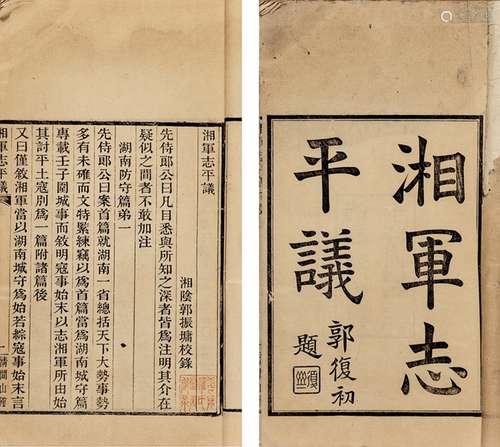 湘軍志
平議
郭復初
題
湘軍志平議
湘陰郭振墉校錄
先侍郎公曰凡目悉與所知之深者皆爲注明其介在
疑似之間者不敢加注
湖南防守篇第一
先侍郎公曰案首篇就湖南一省總括天下大勢事勢
多有未確而文特繁練竊以爲首篇當爲湖南城守篇
專載壬子圍城事而敘明寇事始末以志湘軍所由始
其討平土寇別爲一篇附諸篇後
又曰僅敘湘軍當以湖南城守爲始若綜寇事始末言
湘軍志平議
一